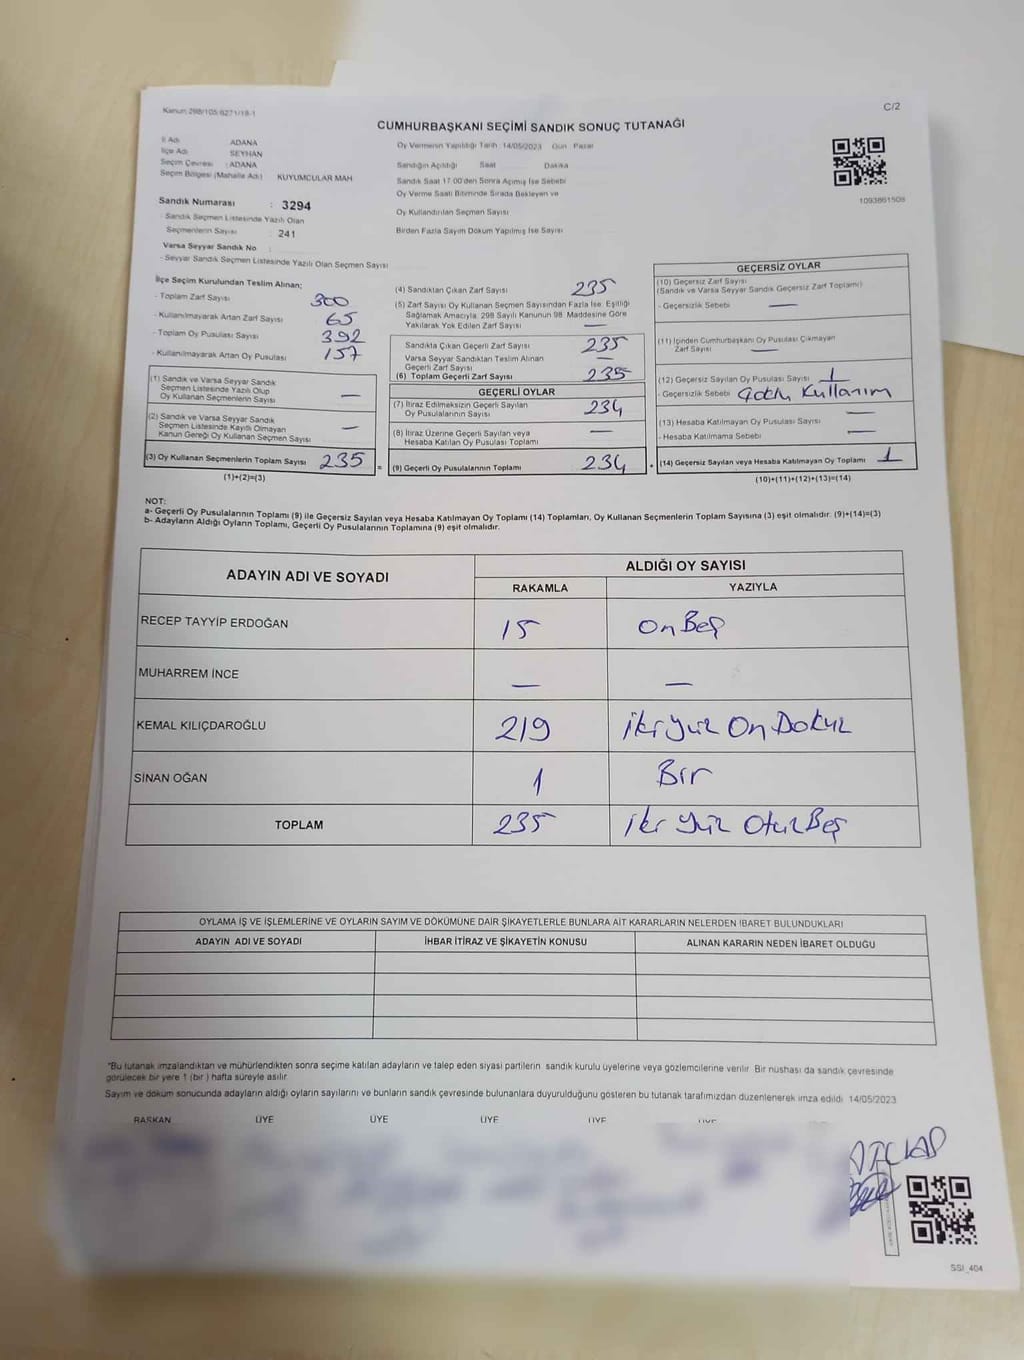 Kanun:298/105-6271/18-1
C/2
CUMHURBAŞKANI SEÇİMİ SANDIK SONUÇ TUTANAĞI
İl Adı ADANA
İlçe Adı SEYHAN
Seçim Çevresi : ADANA
Seçim Bölgesi (Mahalle Adı) KUYUMCULAR MAH
Sandık Numarası : 3294
- Sandık Seçmen Listesinde Yazılı Olan
Seçmenlerin Sayısı : 241
Varsa Seyyar Sandık No :
- Seyyar Sandık Seçmen Listesinde Yazılı Olan Seçmen Sayısı
Oy Vermenin Yapıldığı Tarih : 14/05/2023 Gün : Pazar
Sandığın Açıldığı Saat Dakika
Sandık Saat 17:00'den Sonra Açılmış İse Sebebi
Oy Verme Saati Bitiminde Sırada Bekleyen ve
Oy Kullandırılan Seçmen Sayısı
Birden Fazla Sayım Döküm Yapılmış İse Sayısı
1093861508
İlçe Seçim Kurulundan Teslim Alınan;
- Toplam Zarf Sayısı 300
- Kullanılmayarak Artan Zarf Sayısı 65
- Toplam Oy Pusulası Sayısı 392
- Kullanılmayarak Artan Oy Pusulası 157
(1) Sandık ve Varsa Seyyar Sandık
Seçmen Listesinde Yazılı Olup
Oy Kullanan Seçmenlerin Sayısı —
(2) Sandık ve Varsa Seyyar Sandık
Seçmen Listesinde Kayıtlı Olmayan
Kanun Gereği Oy Kullanan Seçmen Sayısı —
(3) Oy Kullanan Seçmenlerin Toplam Sayısı 235 =
(1)+(2)=(3)
(4) Sandıktan Çıkan Zarf Sayısı 235
(5) Zarf Sayısı Oy Kullanan Seçmen Sayısından Fazla İse, Eşitliği
Sağlamak Amacıyla, 298 Sayılı Kanunun 98. Maddesine Göre
Yakılarak Yok Edilen Zarf Sayısı —
Sandıkta Çıkan Geçerli Zarf Sayısı 235
Varsa Seyyar Sandıktan Teslim Alınan
Geçerli Zarf Sayısı —
(6) Toplam Geçerli Zarf Sayısı 235
GEÇERLİ OYLAR
(7) İtiraz Edilmeksizin Geçerli Sayılan
Oy Pusulalarının Sayısı 234
(8) İtiraz Üzerine Geçerli Sayılan veya
Hesaba Katılan Oy Pusulası Toplamı —
(9) Geçerli Oy Pusulalarının Toplamı 234 +
GEÇERSİZ OYLAR
(10) Geçersiz Zarf Sayısı
(Sandık ve Varsa Seyyar Sandık Geçersiz Zarf Toplamı)
- Geçersizlik Sebebi —
(11) İçinden Cumhurbaşkanı Oy Pusulası Çıkmayan
Zarf Sayısı —
(12) Geçersiz Sayılan Oy Pusulası Sayısı 1
- Geçersizlik Sebebi Çoklu Kullanım
(13) Hesaba Katılmayan Oy Pusulası Sayısı —
- Hesaba Katılmama Sebebi —
(14) Geçersiz Sayılan veya Hesaba Katılmayan Oy Toplamı 1
(10)+(11)+(12)+(13)=(14)
NOT:
a- Geçerli Oy Pusulalarının Toplamı (9) ile Geçersiz Sayılan veya Hesaba Katılmayan Oy Toplamı (14) Toplamları, Oy Kullanan Seçmenlerin Toplam Sayısına (3) eşit olmalıdır. (9)+(14)=(3)
b- Adayların Aldığı Oyların Toplamı, Geçerli Oy Pusulalarının Toplamına (9) eşit olmalıdır.
ADAYIN ADI VE SOYADI
ALDIĞI OY SAYISI
RAKAMLA YAZIYLA
RECEP TAYYİP ERDOĞAN 15 On Beş
MUHARREM İNCE — —
KEMAL KILIÇDAROĞLU 219 İki Yüz On Dokuz
SİNAN OĞAN 1 Bir
TOPLAM 235 İki Yüz Otuz Beş
OYLAMA İŞ VE İŞLEMLERİNE VE OYLARIN SAYIM VE DÖKÜMÜNE DAİR ŞİKAYETLERLE BUNLARA AİT KARARLARIN NELERDEN İBARET BULUNDUKLARI
ADAYIN ADI VE SOYADI İHBAR İTİRAZ VE ŞİKAYETİN KONUSU ALINAN KARARIN NEDEN İBARET OLDUĞU
*Bu tutanak imzalandıktan ve mühürlendikten sonra seçime katılan adayların ve talep eden siyasi partilerin sandık kurulu üyelerine veya gözlemcilerine verilir. Bir nüshası da sandık çevresinde
görülecek bir yere 1 (bir ) hafta süreyle asılır.
Sayım ve döküm sonucunda adayların aldığı oyların sayılarını ve bunların sandık çevresinde bulunanlara duyurulduğunu gösteren bu tutanak tarafımızdan düzenlenerek imza edildi. 14/05/2023
BAŞKAN ÜYE ÜYE ÜYE ÜYE ÜYE
SSI_404